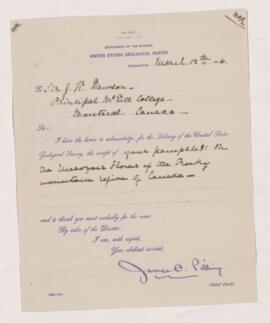 DEPARTMENT OF THE INTERIOR
UNITED STATES GEOLOGICAL SURVEY
March 12th
To Sir J. W. Dawson
Principal McGill College
Montreal, Canada
Sir:
I have the honor to acknowledge, for the Library of the United States
Geological Survey, the receipt of your pamphlet: On
the Mesozoic Floras of the Rocky
Mountain region of Canada
and to thank you most cordially for the same.
By order of the Director:
I am, with respect,
Your obedient servant,
James C. Pilling
Chief Clerk.